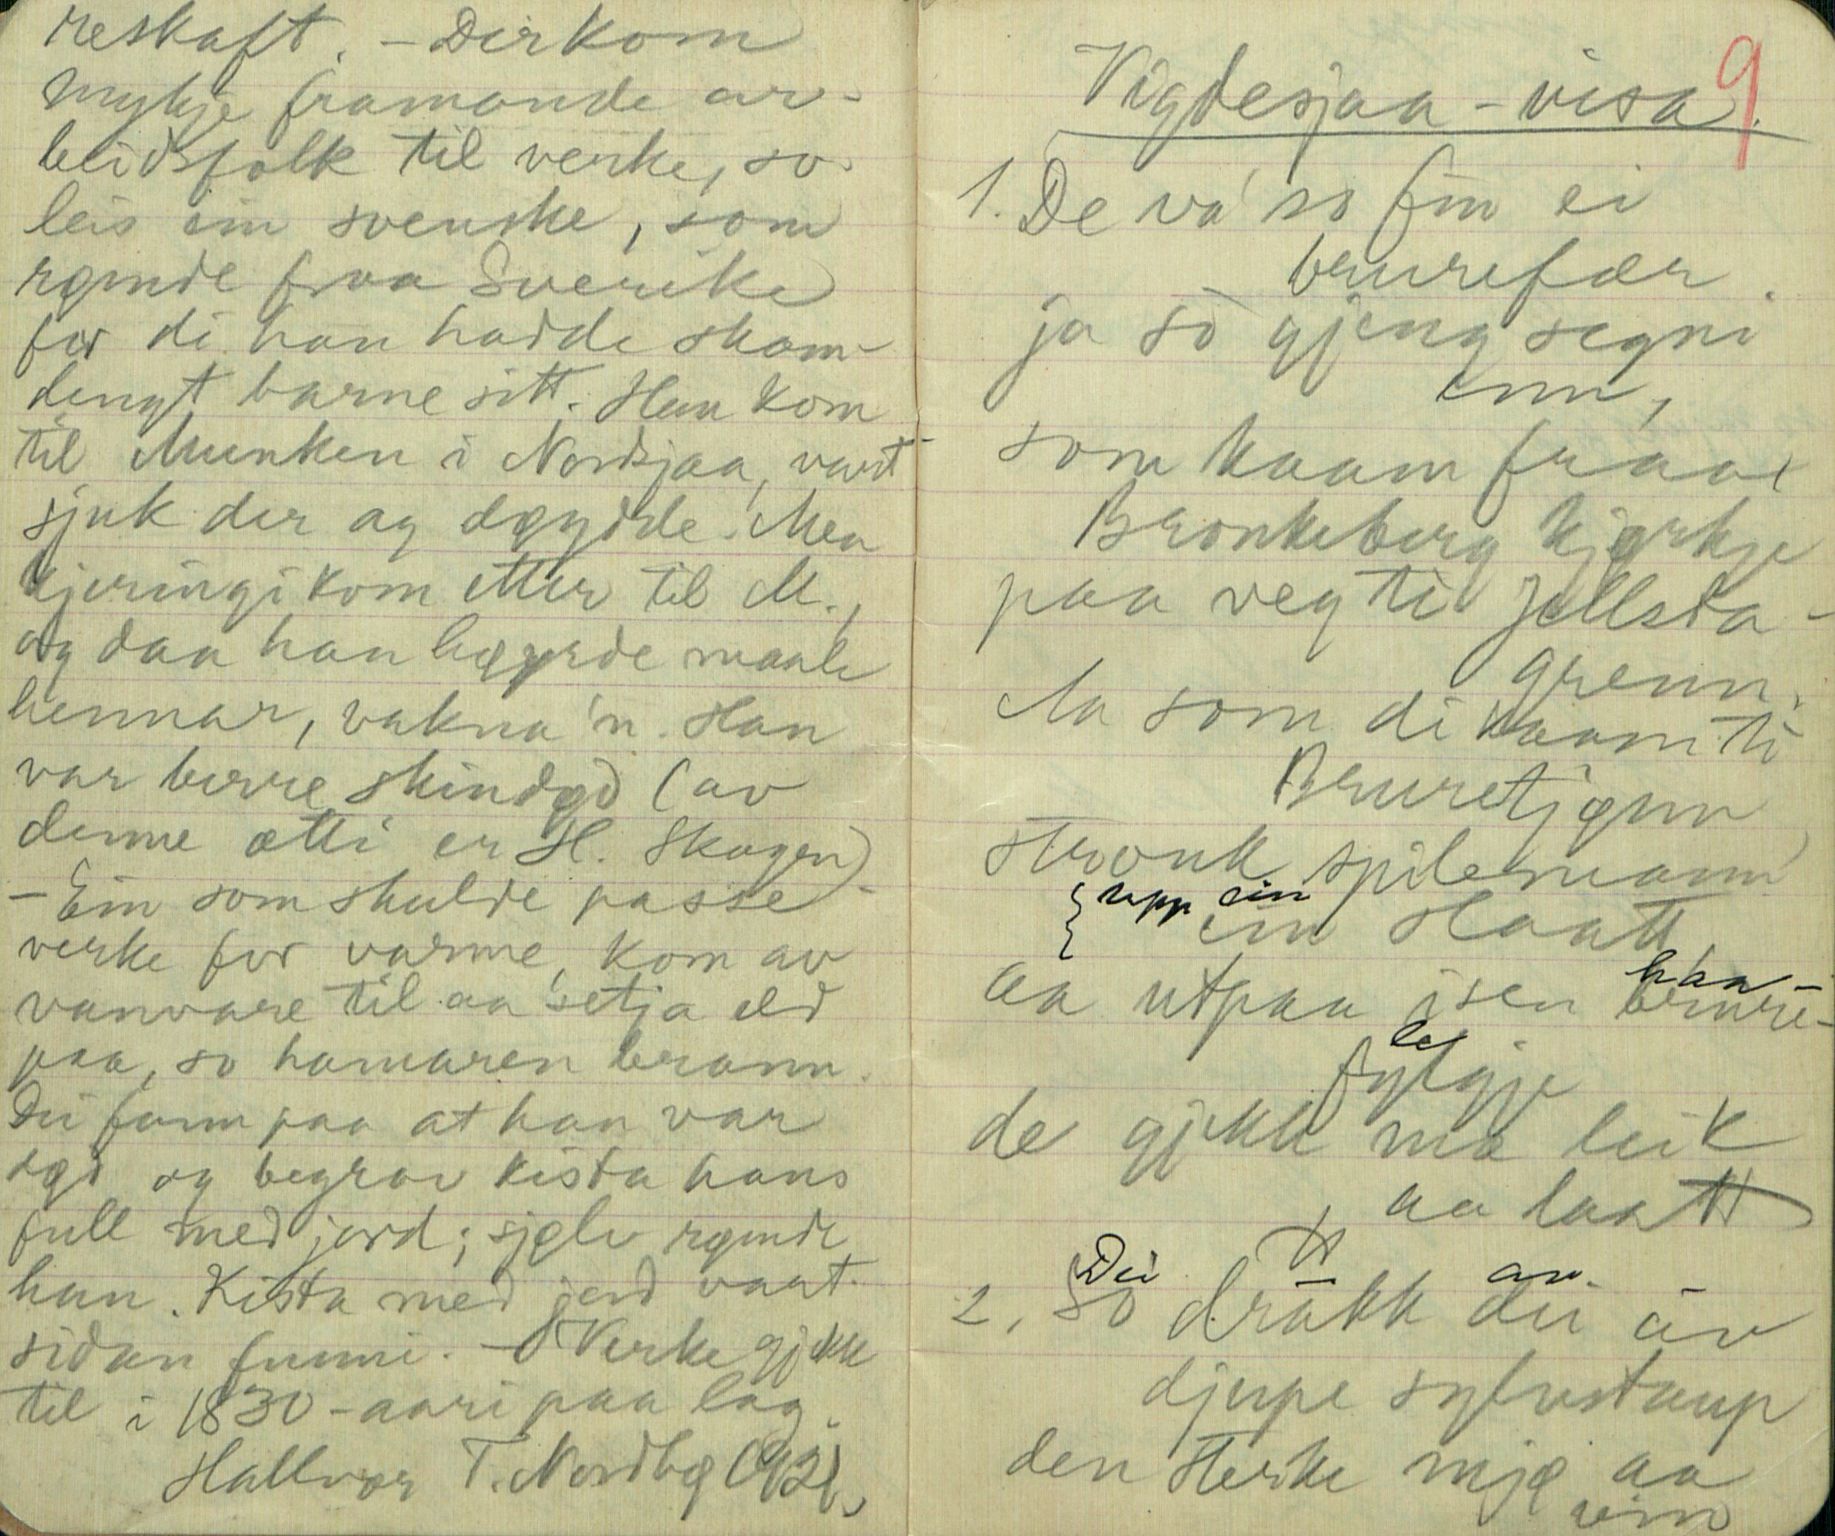 reskaft. – Der kom
mykje framande ar-
beidsfolk til verke, so-
leis ein svenske, som
rømde fraa Sverike
for di han hadde skam-
dengt barne sitt. Han kom
til Munken i Nordsjaa, vart
sjuk der og døydde. Men
kjeringi kom etter til M.,
og daa han høyrde maale
hennar, vakna 'n. Han
var berre skindød (av
denne ætti er H. Skogen)
– Ein som skulde passe
verke for varme, kom av
vanvare til aa setja eld
paa, so hamaren brann.
Dei fann paa at han var
død og begrov kista hans
full med jord; sjølv rømde
han. Kista med jord vart
sidan funni. – Verke gjekk
til i 1830-aari paa lag.
Hallvor T. Nordbø (92).
Vigdesjaa-visa. 9
1. De va' so fin ei
brurefær.
ja so gjeng segni
enn,
som kaam fraa
Bronkeberg kjørkje
paa veg ti Jellsta-
grenn.
Aa som di kaam ti
Bruretjønn
strouk spilemann
upp ein
ein slaatt,
aa utpaa isen brure-
haa-
fylgje
le
de gjekk mæ leik
aa laatt
2. So drakk dei av
Dei av
djupe sylvstaup
den sterke mjø aa
vin